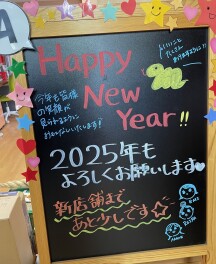 A
Happy
New
Year!!
いいこと
たくさん
ありますように!!
今年も皆様
の笑顔が
見られるように
2025年も
よろしくお願いします
新店舗まで
あと少しです